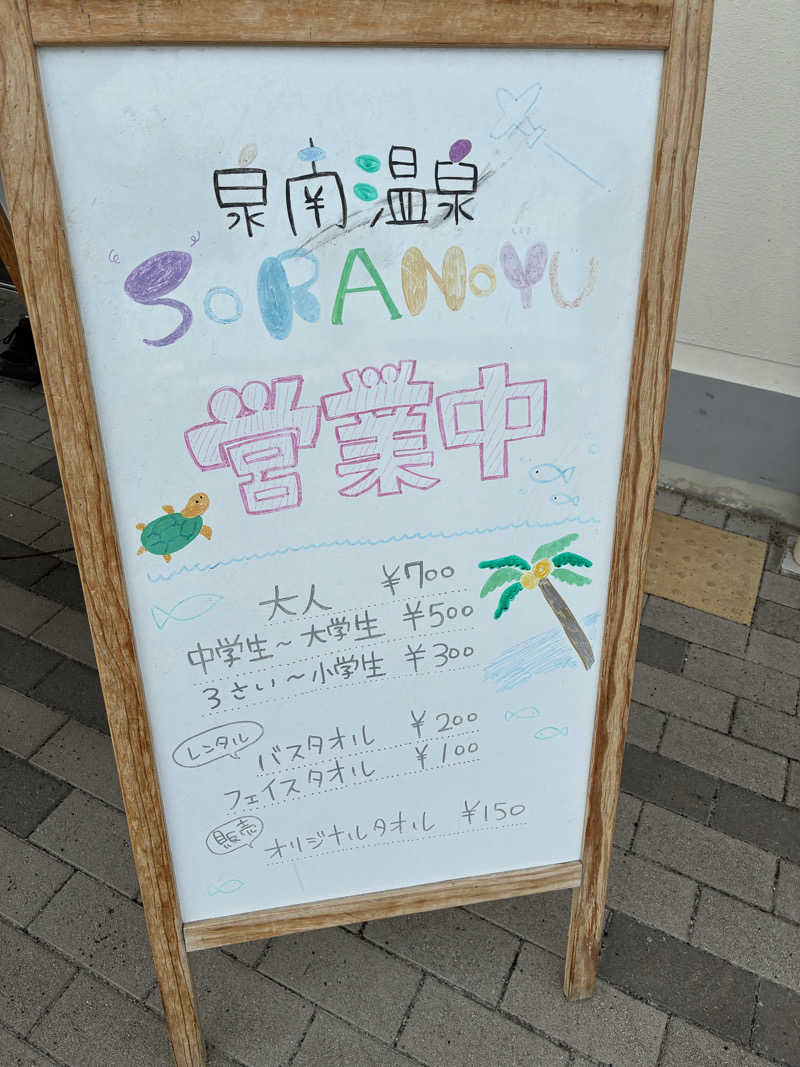 泉南温泉
SORANOYU
営業中
大人 ¥700
中学生～大学生 ¥500
3さい～小学生 ¥300
レンタル
バスタオル ¥200
フェイスタオル ¥100
販売
オリジナルタオル ¥150